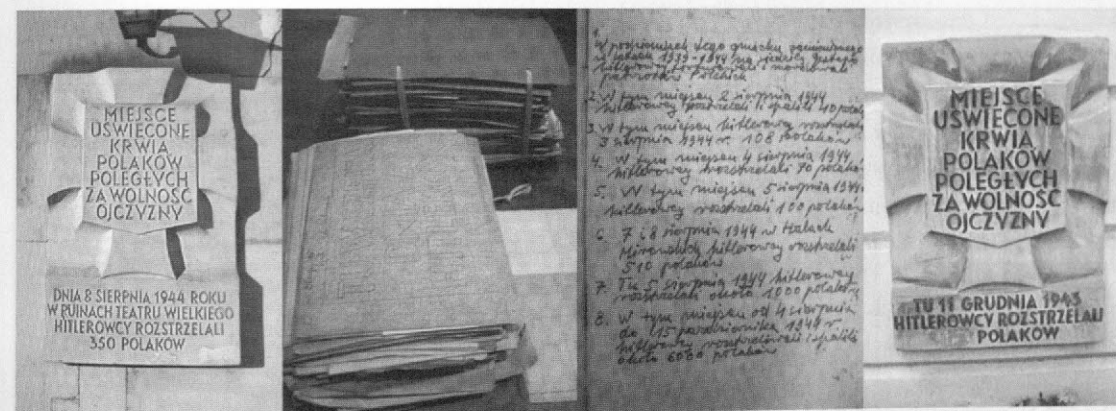 MIEJSCE
UŚWIĘCONE
KRWIĄ
POLAKÓW
POLEGŁYCH
ZA WOLNOŚĆ
OJCZYZNY
DNIA 8 SIERPNIA 1944 ROKU
W RUINACH TEATRU WIELKIEGO
HITLEROWCY ROZSTRZELALI
350 POLAKÓW
1.
W podziemiach tego gmachu
w latach 1939-1944
hitlerowcy i mordowali
Polskich
2. W tym miejscu 2 sierpnia 1944
hitlerowcy rozstrzelali i spalili 40
3. W tym miejscu hitlerowcy
3 sierpnia 1944 r. 108 polaków
4. W tym miejscu 4 sierpnia 1944
hitlerowcy rozstrzelali 70 polaków
5. W tym miejscu 5 sierpnia 1944
hitlerowcy rozstrzelali 100 polaków
6. 7 i 8 sierpnia 1944 w Halach
Mirowskich hitlerowcy rozstrzelali
510 polaków
7. Tu 5 sierpnia 1944 hitlerowcy
rozstrzelali około 1000 polaków
8. W tym miejscu od 4 sierpnia
do 15 października 1944 r.
hitlerowcy rozstrzeliwali i spalili
około 6000 polaków
MIEJSCE
UŚWIĘCONE
KRWIĄ
POLAKÓW
POLEGŁYCH
ZA WOLNOŚĆ
OJCZYZNY
TU 11 GRUDNIA 1943
HITLEROWCY ROZSTRZELALI
POLAKÓW